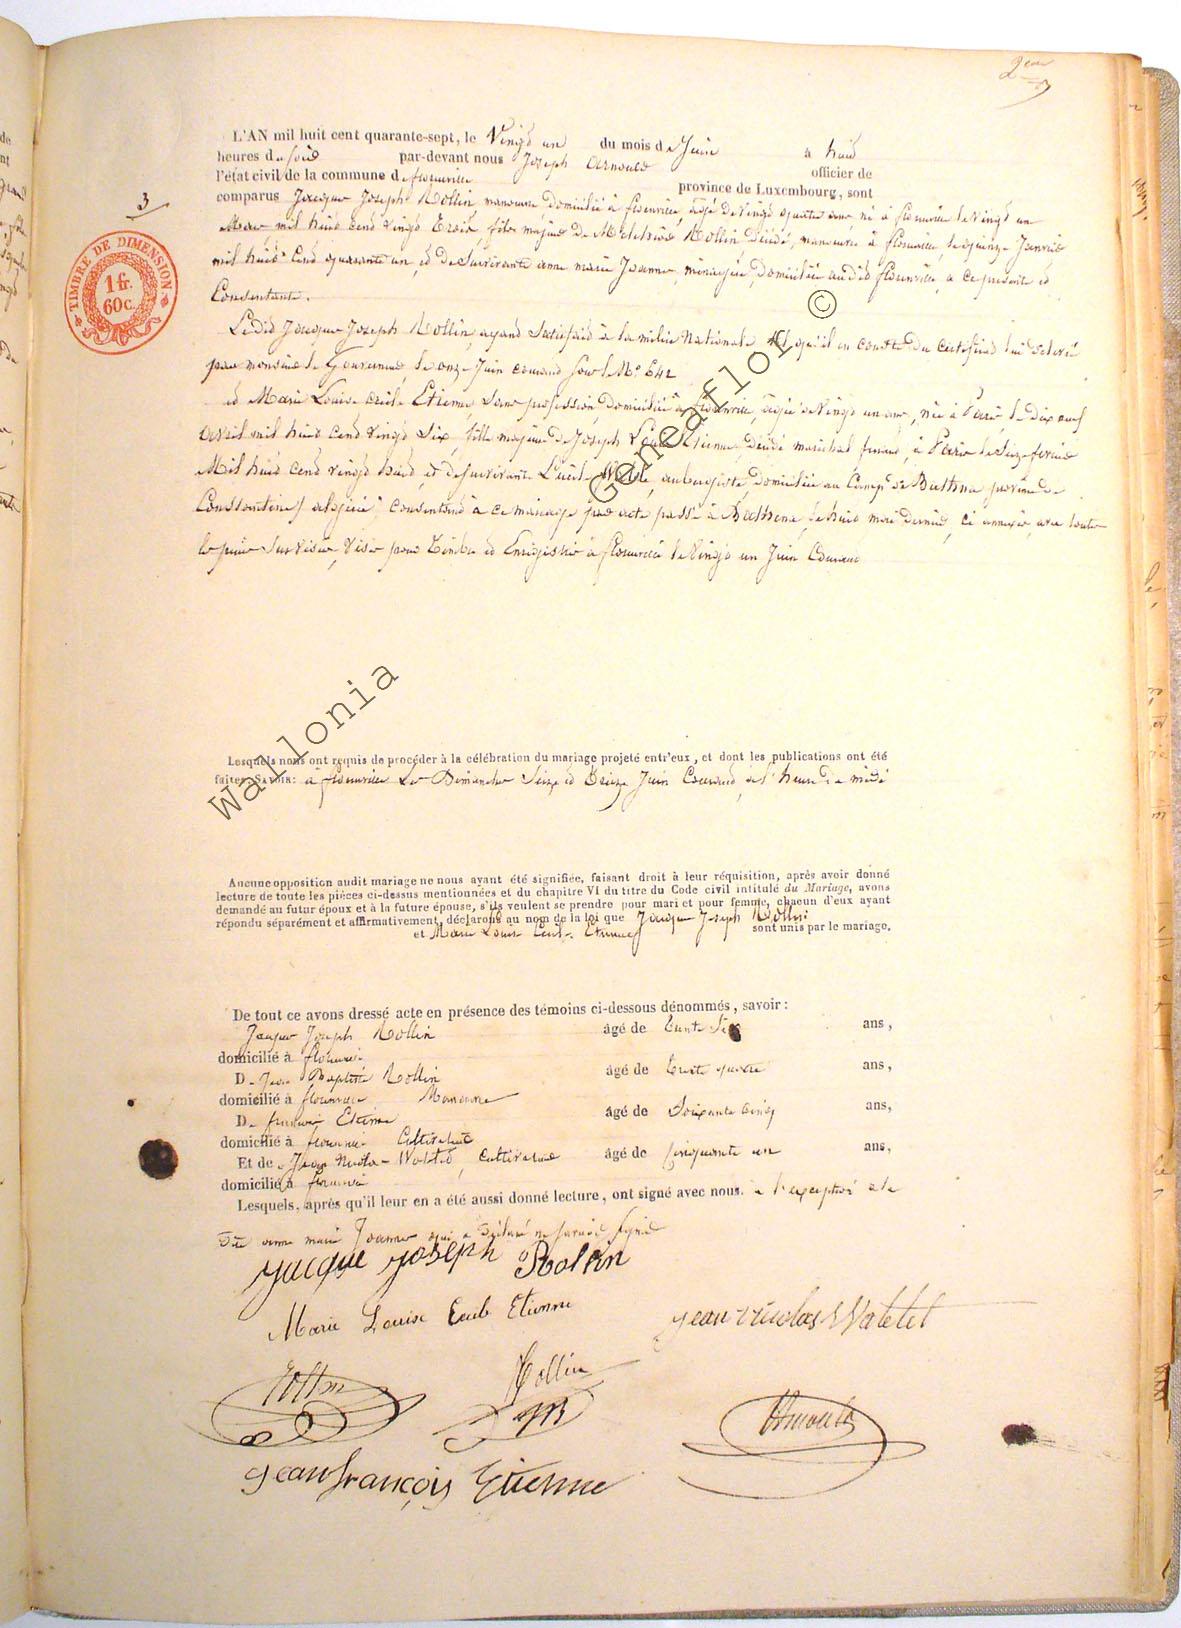 2em
3
TIMBRE DE DIMENSION
1 fr.
60c.
L'AN mil huit cent quarante-sept, le Vingt un du mois de Juin à huit
heures du soir par-devant nous Joseph Arnould officier de
l'état civil de la commune de florenville province de Luxembourg, sont
comparus Jacques Joseph Rollin manoeuvre domicilié à florenville, âgé de Vingt quatre ans né à florenville le vingt un
Mars mil huit cent vingt trois fils majeur de Melchior Rollin, décédé, manoeuvre à florenville, le quinze Janvier
mil huit cent quarante un, et de survivante anne marie Jeanne, ménagère, domiciliée audit florenville, a ce présente et
Consentante.
Ledit Jacques Joseph Rollin, ayant satisfait à la milice Nationale qu'il en conste du certificat lui délivré
par monsieur le Gouverneur, le onze Juin courant sous le No 642
et Marie Louise Cécile Etienne sans profession, domiciliée à florenville, âgée de Vingt un ans, née à Paris, le dix neuf
avril mil huit cent vingt six, fille majeure de Joseph Louis Etienne, décédé maréchal ferrant, à Paris le seize février
Mil huit cent vingt huit et de survivante Lucile aubergiste, domiciliée au Camp de Bathna province de
Constantine, consentant à ce mariage par acte passé à Bathena, le huit mai dernier, ci annexé, avec toutes
les pièces Visé pour timbre et Enregistré à florenville le Vingt un Juin Courant
Lesquels nous ont requis de procéder à la célébration du mariage projeté entr'eux, et dont les publications ont été
faites, SAVOIR: à florenville Les Dimanches Six et treize Juin Courant, à l'heure de midi
Aucune opposition audit mariage ne nous ayant été signifiée, faisant droit à leur réquisition, après avoir donné
lecture de toute les pièces ci-dessus mentionnées et du chapitre VI du titre du Code civil intitulé du Mariage, avons
demandé au futur époux et à la future épouse, s'ils veulent se prendre pour mari et pour femme, chacun d'eux ayant
répondu séparément et affirmativement, déclarons au nom de la loi que Jacques Joseph Rollin
et Marie Louise Cécile Etienne sont unis par le mariage.
De tout ce avons dressé acte en présence des témoins ci-dessous dénommés, savoir:
Jacques Joseph Rollin âgé de trente six ans,
domicilié à florenville
De Jean Baptiste Rollin âgé de trente quatre ans,
domicilié à florenville Manoeuvre
De françois Etienne âgé de Soixante cinq ans,
domicilié à florenville Cultivateur
Et de Jean Nicolas Watelet, cultivateur âgé de Cinquante un ans,
domicilié à florenville
Lesquels, après qu'il leur en a été aussi donné lecture, ont signé avec nous. à l'exception de la
dite anne marie Jeanne qui a déclaré ne savoir signer
jacque joseph Rollin
Marie Louise Cecile Etienne
jean nicolas Watelet
Rollin
Rollin
JB
Arnould
jean françois Etienne
Wallonia
Geneaflor ©